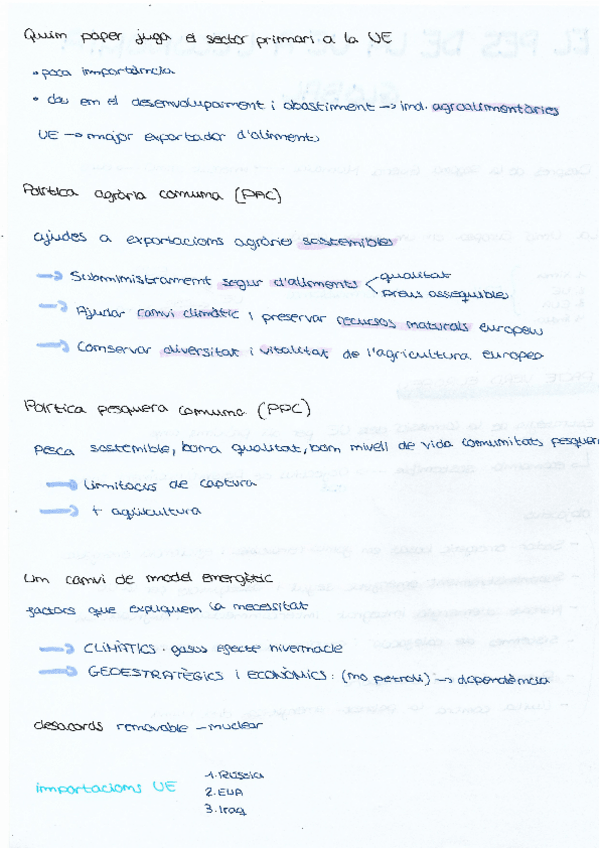 Quin paper juga el sector primari a la UE
• poca importància
• clau em el desenvolupament i abastiment → ind. agroalimentàries
UE → major exportador d'aliments
Política agrària comuna (PAC)
ajudes a exportacions agràries sostenibles
→ Subministrament segur d'aliments < qualitat
preus assequibles
→ Ajudar canvi climàtic i preservar recursos naturals europeus
→ Conservar diversitat i vitalitat de l'agricultura europea
Política pesquera comuna (PPC)
pesca sostenible, bona qualitat, bon nivell de vida comunitats pesquer
→ limitacions de captura
→ + aqüicultura
Un canvi de model energètic
factors que expliquen la necessitat
→ CLIMÀTICS · gasos efecte hivernacle
→ GEOESTRATÈGICS i ECONÒMICS: (no petroli) → dependència
desacords renovable – nuclear
importacions UE
1. Rússia
2. EUA
3. Iraq